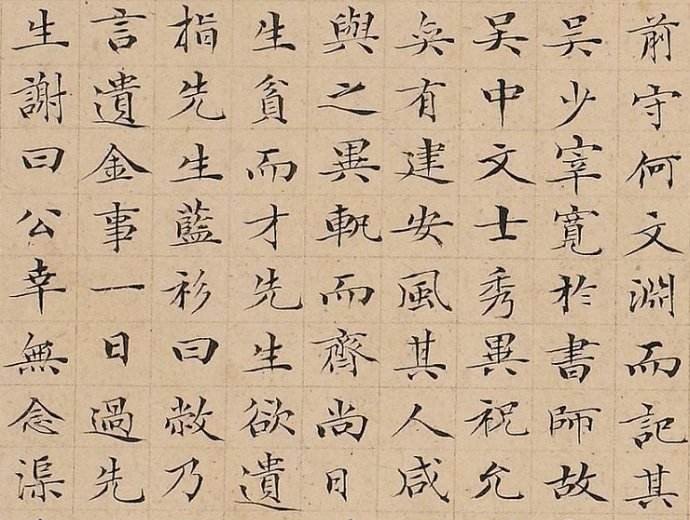 前守何文淵而記其
吳少宰寬於書師故
吳中文士秀異祝允
奐有建安風其人咸
與之異軌而齊尚日
生貧而才先生欲遺
指先生藍衫曰敝乃
言遺金事一日過先
生謝曰公幸無念渠